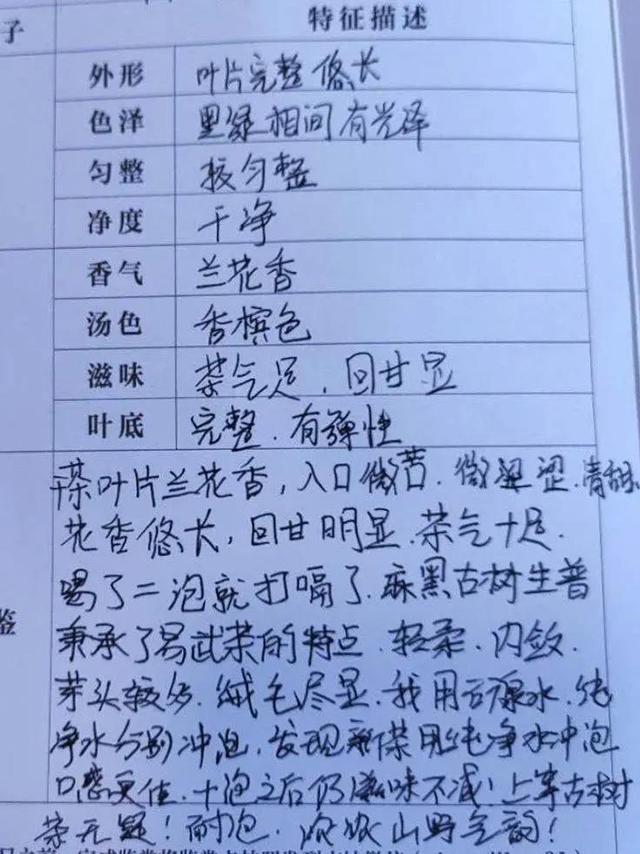 子 特征描述
外形 叶片完整悠长
色泽 墨绿相间有光泽
匀整 较匀整
净度 干净
香气 兰花香
汤色 香槟色
滋味 茶气足，回甘显
叶底 完整、有弹性
干茶叶片兰花香，入口微苦、微涩、清甜
花香悠长，回甘明显、茶气十足、
喝了二泡就打嗝了、麻黑古树生普
鉴 秉承了易武茶的特点、轻柔、内敛、
芽头较多、绒毛尽显、我用 水、纯
净水分别冲泡，发现 茶用纯净水冲泡
口感更佳、十泡之后仍滋味不减！上等古树
茶无疑！耐泡、浓浓山野气韵！